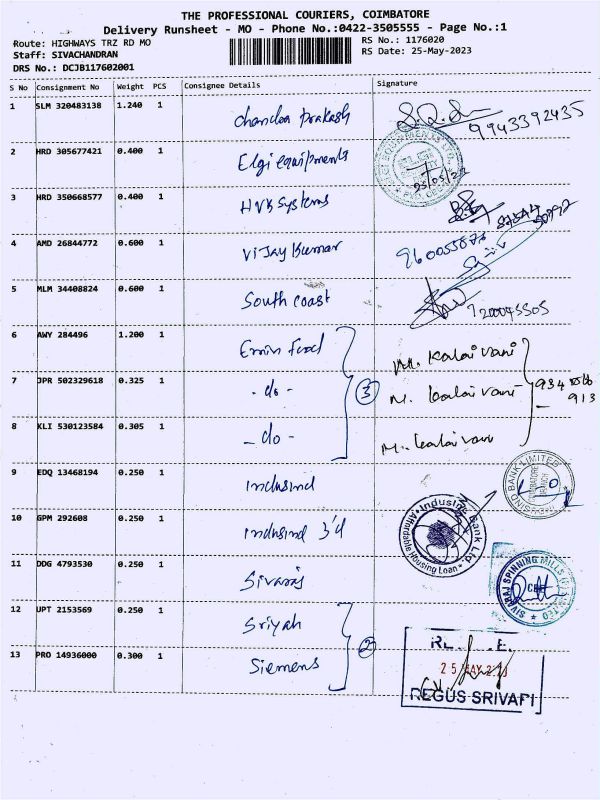 THE PROFESSIONAL COURIERS, COIMBATORE
Delivery Runsheet - MO - Phone No.:0422-3505555 - Page No.:1
Route: HIGHWAYS TRZ RD MO
RS No.: 1176020
Staff: SIVACHANDRAN
RS Date: 25-May-2023
DRS No.: DCJB117602001
S No Consignment No Weight PCS Consignee Details Signature
1 SLM 320483138 1.240 1 Chandra Prakash 9943392435
2 HRD 305677421 0.400 1 Elgi equipments
ELGI EQUIPMENTS LTD.
3 HRD 350668577 0.400 1 HVK Systems
4 AMD 26844772 0.600 1 Vijay Kumar
5 MLM 34408824 0.600 1 South coast
6 AWY 284496 1.200 1 food M. Kalaivani
7 JPR 502329618 0.325 1 - do - M. Kalaivani
3
8 KLI 530123584 0.305 1 - do - M. Kalaivani
9 EDQ 13468194 0.250 1 Indusind
10 GPM 292608 0.250 1 Indusind
IndusInd Bank Ltd
Affordable Housing Loan
11 DDG 4793530 0.250 1 Sivaraj
SIVARAJ SPINNING MILLS
12 UPT 2153569 0.250 1 Sriyah
2
13 PRO 14936000 0.300 1 Siemens
25 MAY
REGUS SRIVARI